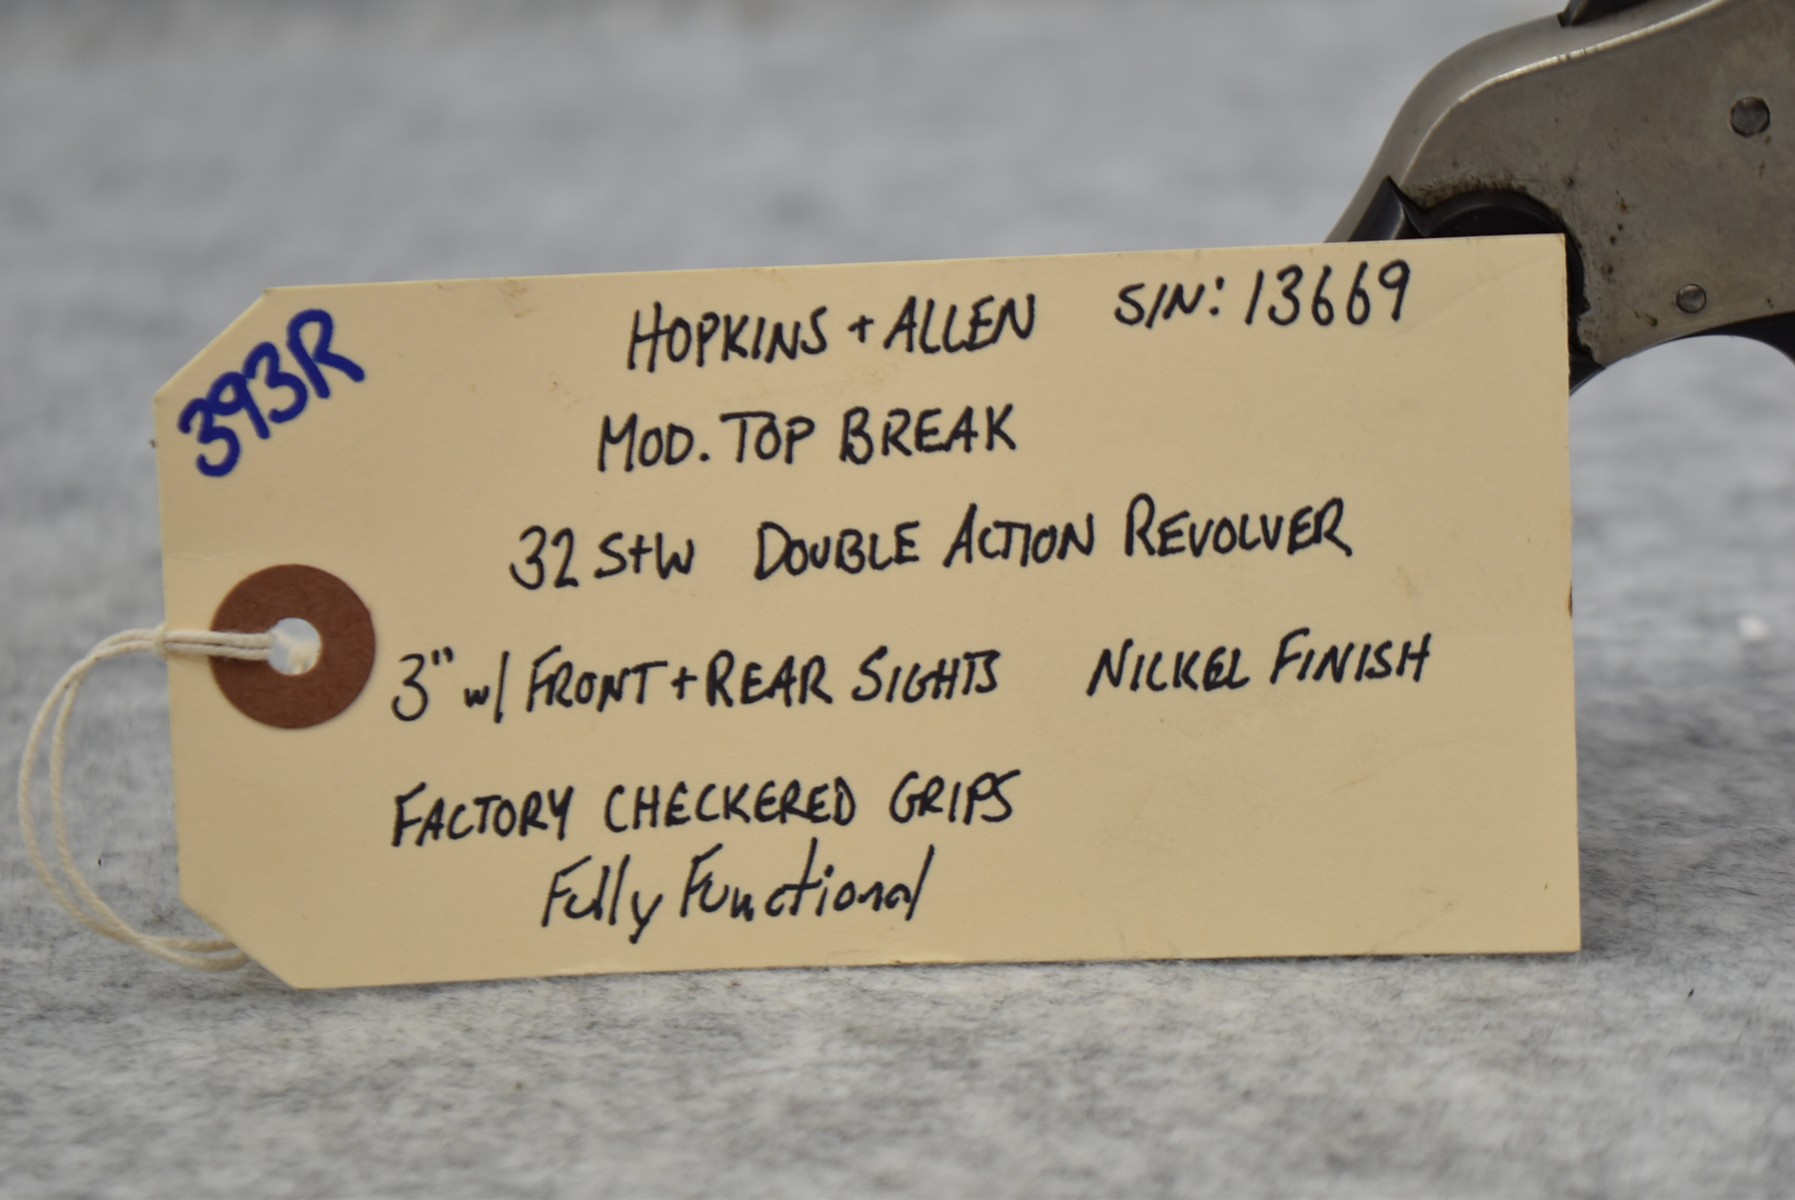 393R
HOPKINS + ALLEN S/N: 13669
MOD. TOP BREAK
32 S+W DOUBLE ACTION REVOLVER
3" w/ FRONT + REAR SIGHTS NICKEL FINISH
FACTORY CHECKERED GRIPS
Fully Functional